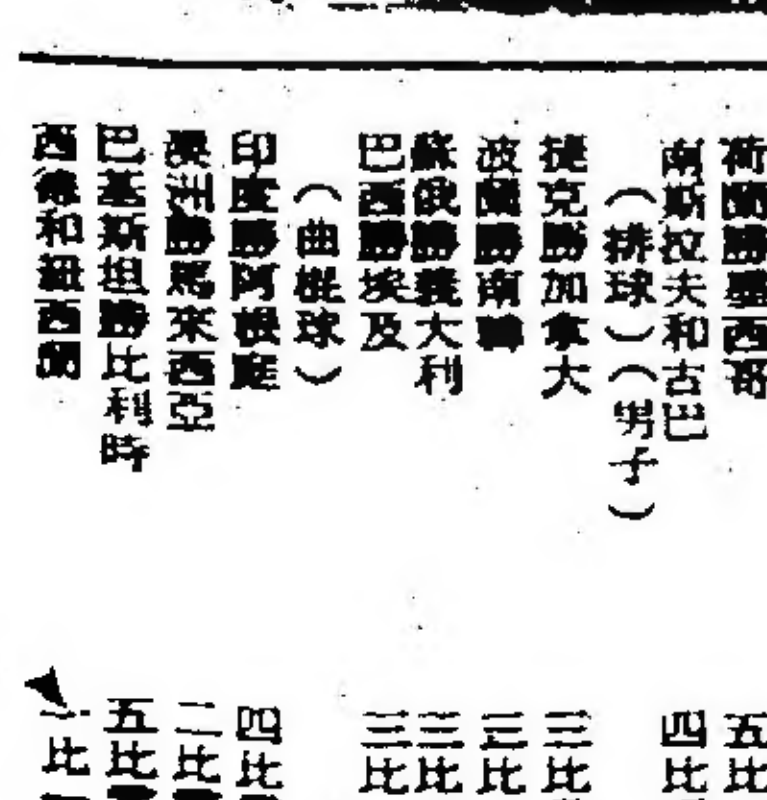 荷蘭勝墨西哥 五比
南斯拉夫和古巴 四比
（排球）（男子）
捷克勝加拿大 三比
波蘭勝南韓 三比
蘇俄勝義大利 三比
巴西勝埃及 三比
（曲棍球）
印度勝阿根廷 四比
澳洲勝馬來西亞 二比
巴基斯坦勝比利時 五比
西德和紐西蘭 一比